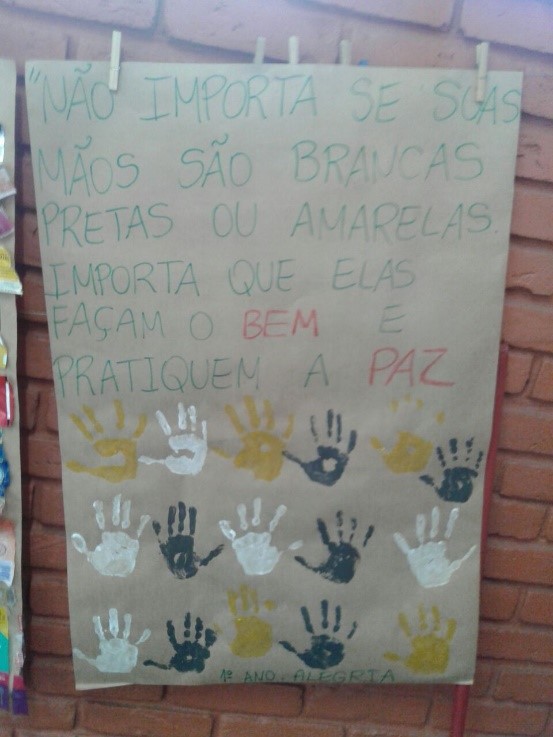 "NÃO IMPORTA SE SUAS
MÃOS SÃO BRANCAS
PRETAS OU AMARELAS.
IMPORTA QUE ELAS
FAÇAM O BEM E
PRATIQUEM A PAZ
1º ANO. ALEGRIA